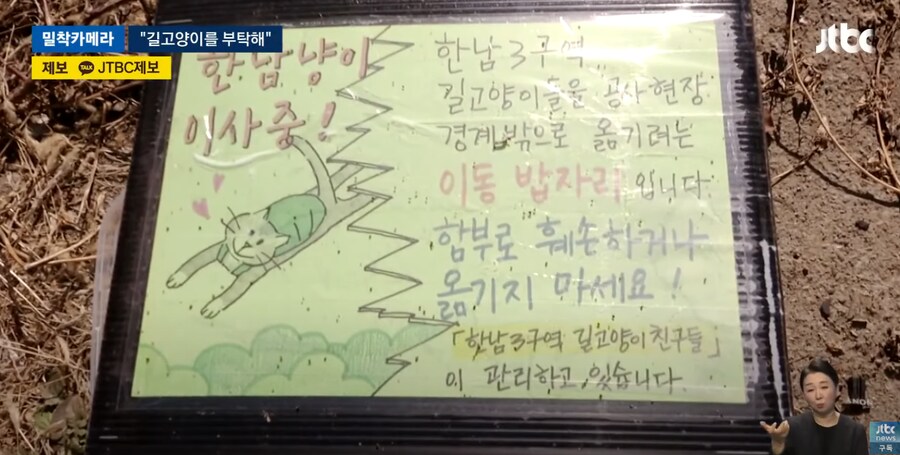 밀착카메라 "길고양이를 부탁해"
제보 TALK JTBC제보
jtbc
한남냥이
이사중!
한남3구역
길고양이들을 공사현장
경계밖으로 옮기려는
이동 밥자리 입니다
함부로 훼손하거나
옮기지 마세요!
「한남3구역 길고양이친구들」
이 관리하고 있습니다
jtbc
news
구독